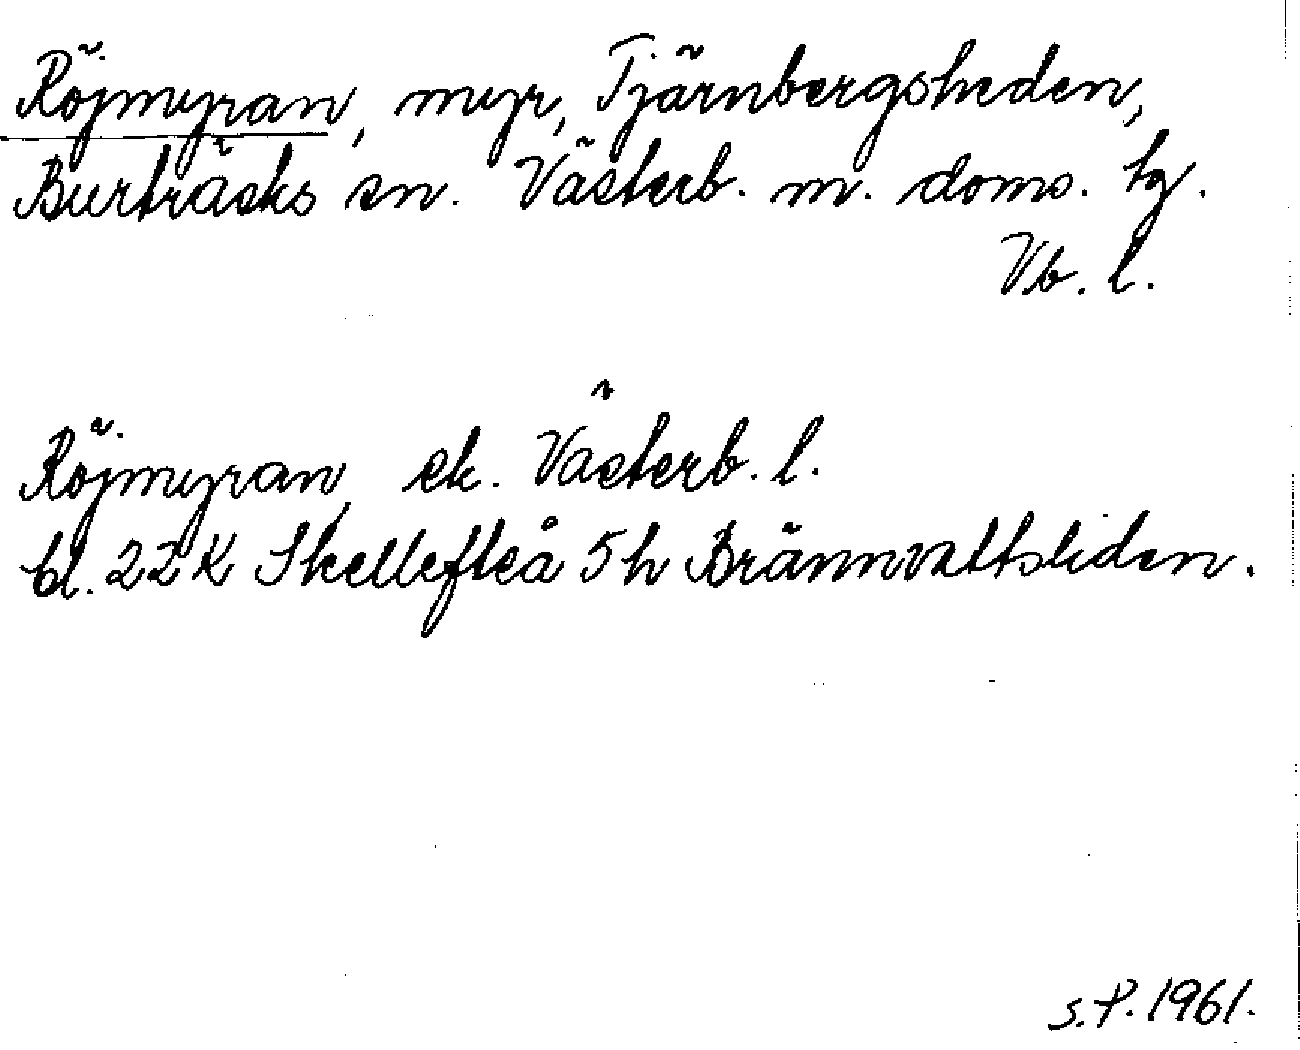 Röjmyran, myr, Tjärnbergsheden,
Burträsks sn. Västerb. m. doms. tg.
Vb. l.
Röjmyran, ek. Västerb. l.
bl. 22K Skellefteå 5h Brännvattsliden.
S.P. 1961.